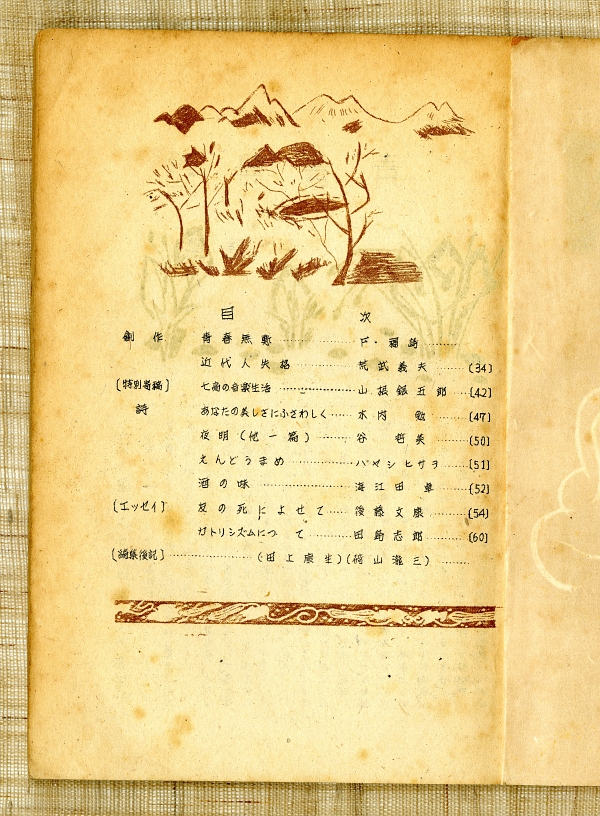 目 次
創作 青春 ………… 戸・福崎 ……
近代人失格 ………… 荒武義夫 ……〔34〕
〔特別寄稿〕 七高の音楽生活 ………… 山根銀五郎 ……〔42〕
詩 あなたの美しさにふさわしく …… 木内 勉 ……〔47〕
夜明(他一篇) …… 谷 哲美 ……〔50〕
えんどうまめ ………… ハヤシヒサヲ ……〔51〕
酒の味 ………… 海江田 ……〔52〕
〔エッセイ〕 友の死によせて …… 後藤文康 ……〔54〕
カトリシズムについて …… 田崎志郎 ……〔60〕
〔編集後記〕 ………… (田上康生)(碇山瀧三) ……